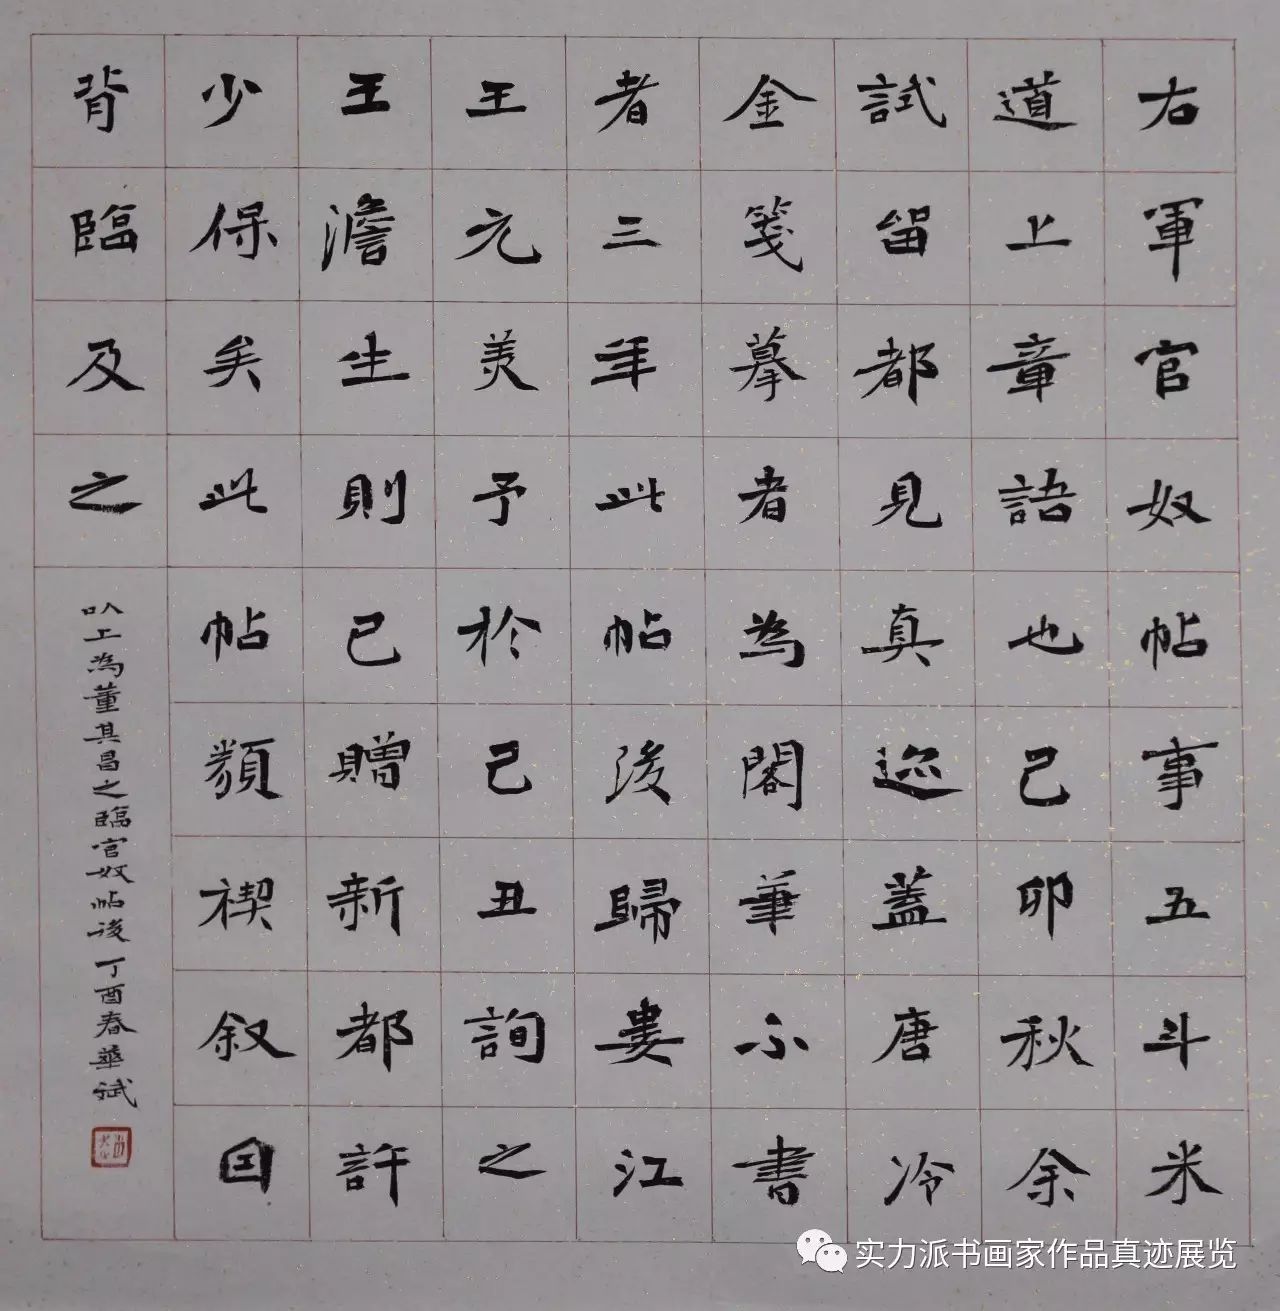 右軍官奴帖事五斗米
道上章語也己卯秋余
試留都見真迹蓋唐冷
金箋摹者為閣筆不書
者三年此帖後歸婁江
王元美予於己丑詢之
王澹生則已贈新都許
少保矣此帖類禊叙因
背臨及之
以上為董其昌之臨官奴帖後丁酉春華斌
实力派书画家作品真迹展览